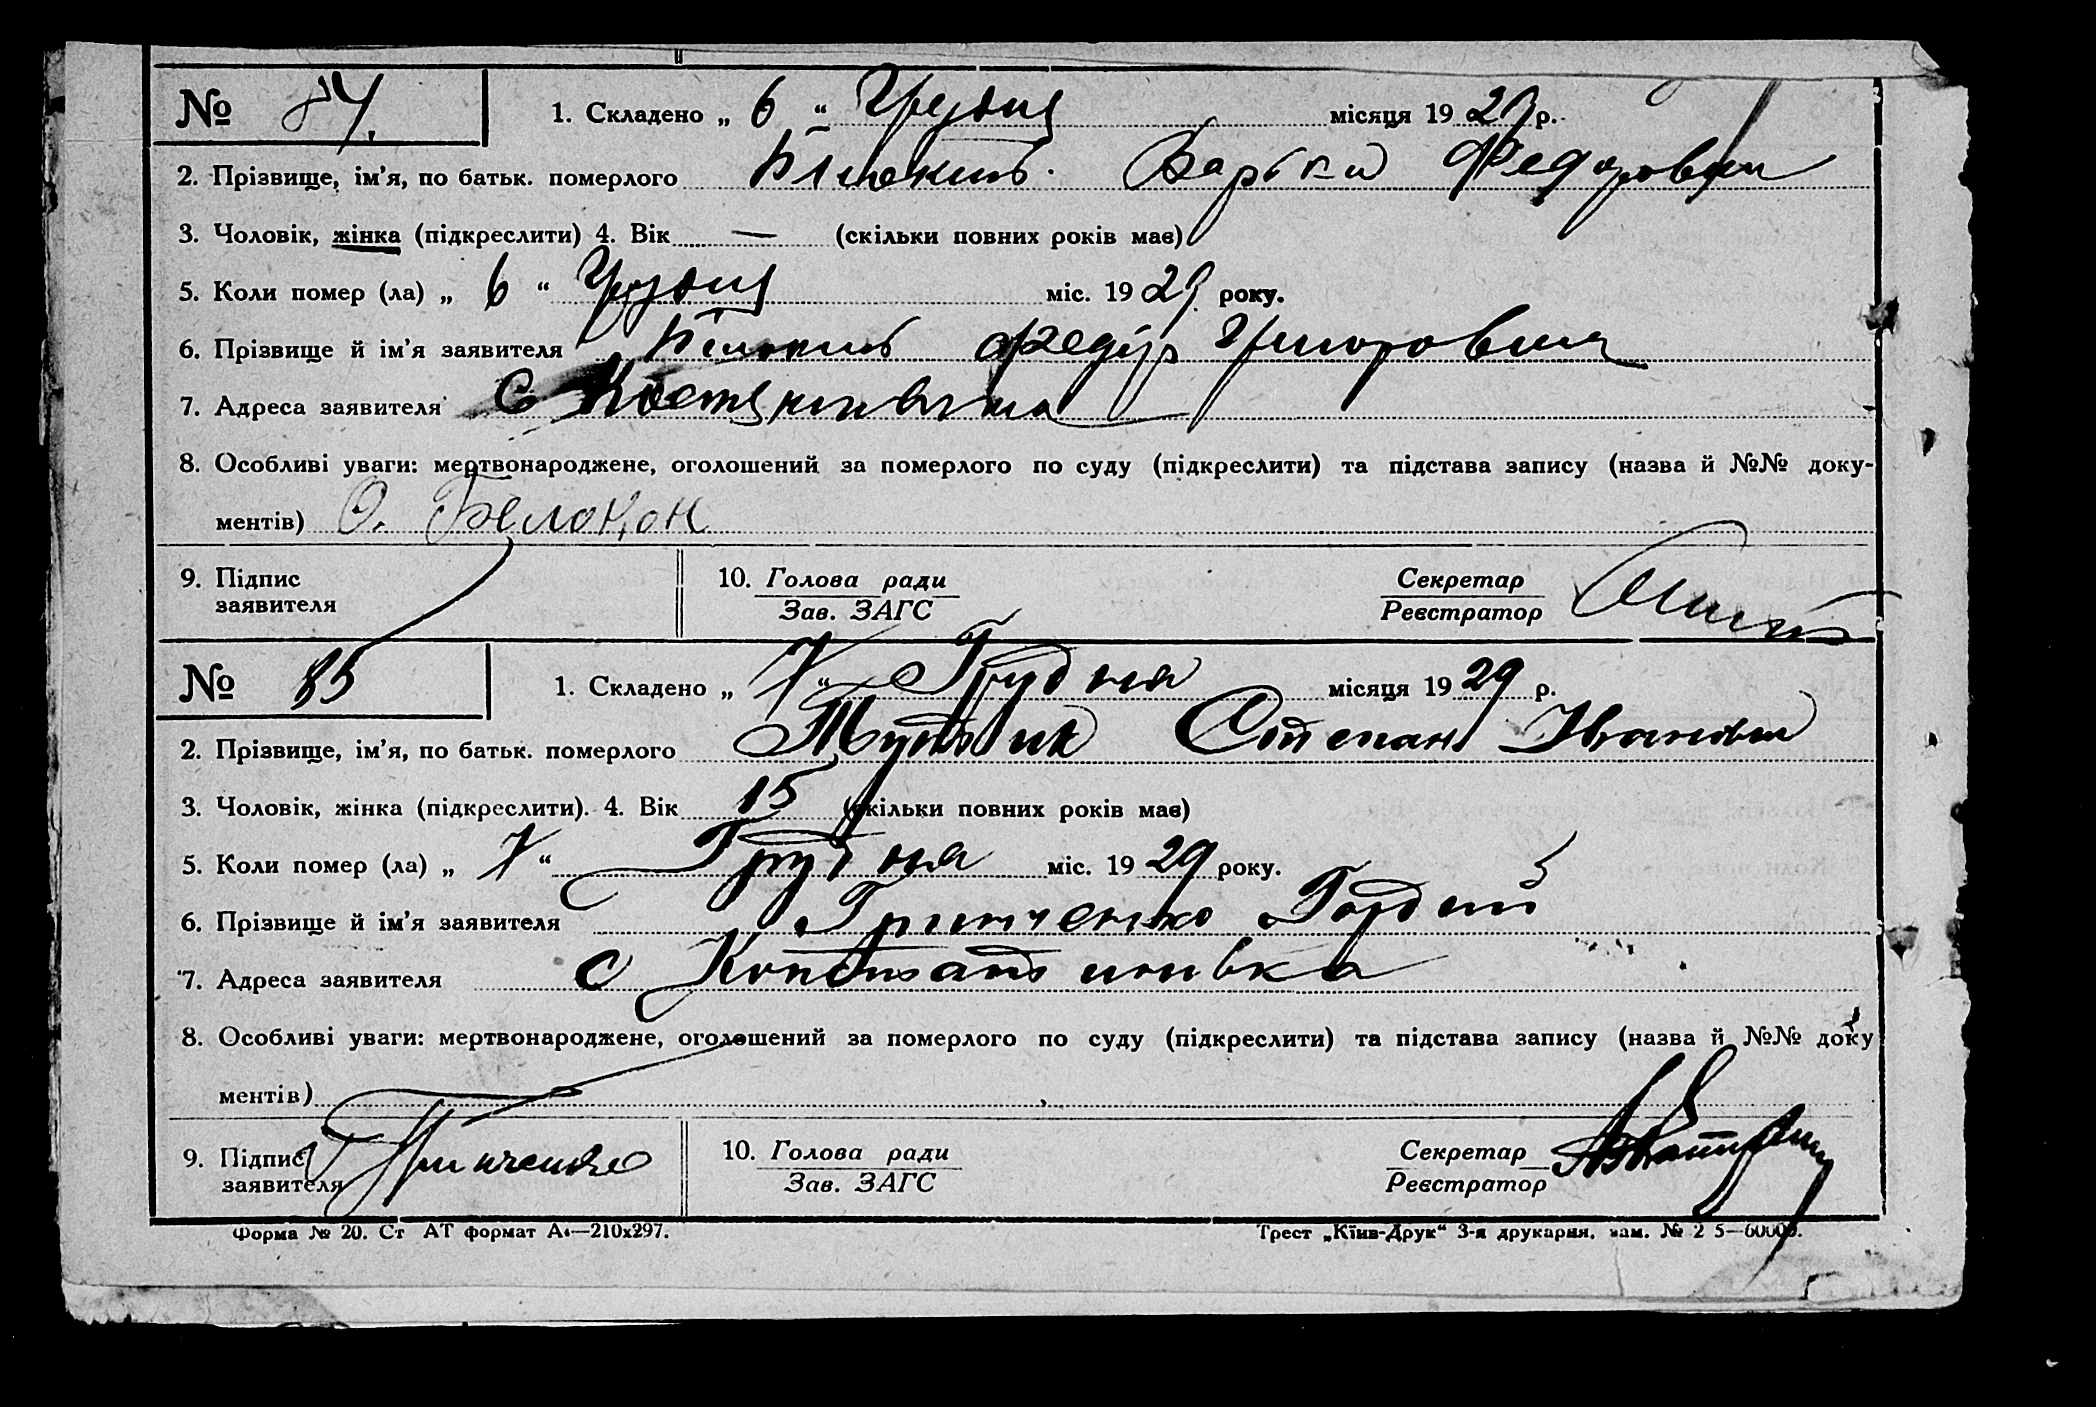 № 84. 1. Складено „ 6 “ Грудня місяця 1929 р.
2. Прізвище, ім'я, по батьк. померлого Білокинь Варька Федоровни
3. Чоловік, жінка (підкреслити) 4. Вік — (скільки повних років має)
5. Коли помер (ла) „ 6 “ Грудня міс. 1929 року.
6. Прізвище й ім'я заявителя Білокинь Федір Григорович
7. Адреса заявителя с
8. Особливі уваги: мертвонароджене, оголошений за померлого по суду (підкреслити) та підстава запису (назва й №№ доку-
ментів) О. Белоконь
9. Підпис заявителя 10. Голова ради Секретар
Зав. ЗАГС Реєстратор
№ 85 1. Складено „ 7 “ Грудня місяця 1929 р.
2. Прізвище, ім'я, по батьк. померлого Степан Іванович
3. Чоловік, жінка (підкреслити). 4. Вік 15 (скільки повних років має)
5. Коли помер (ла) „ 7 “ Грудня міс. 1929 року.
6. Прізвище й ім'я заявителя Гринченко Гордій
7. Адреса заявителя с Константиновка
8. Особливі уваги: мертвонароджене, оголошений за померлого по суду (підкреслити) та підстава запису (назва й №№ доку
ментів)
9. Підпис заявителя Гринченко 10. Голова ради Секретар
Зав. ЗАГС Реєстратор
Форма № 20. Ст АТ формат А4—210x297. Трест „Київ-Друк“ 3-я друкарня, зам. №